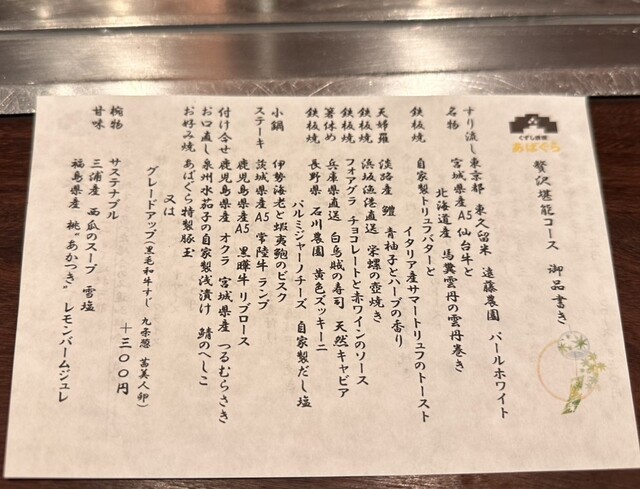 くずし鉄板
あばぐら
贅沢堪能コース 御品書き
すり流し 東京都 東久留米 遠藤農園 パールホワイト
名物 宮城県産A5仙台牛と
北海道産 馬糞雲丹の雲丹巻き
鉄板焼 自家製トリュフバターと
イタリア産サマートリュフのトースト
天婦羅 淡路産 鱧 青柚子とハーブの香り
鉄板焼 浜坂漁港直送 栄螺の壺焼き
鉄板焼 フォアグラ チョコレートと赤ワインのソース
箸休め 兵庫県直送 白烏賊の寿司 天然キャビア
鉄板焼 長野県 石川農園 黄色ズッキーニ
パルミジャーノチーズ 自家製だし塩
小鍋 伊勢海老と蝦夷鮑のビスク
ステーキ 茨城県産A5 常陸牛 ランプ
鹿児島県産A5 黒曄牛 リブロース
付け合せ 鹿児島県産 オクラ 宮城県産 つるむらさき
お口直し 泉州水茄子の自家製浅漬け 鯖のへしこ
お好み焼 あばぐら特製豚玉
又は
グレードアップ(黒毛和牛すじ 九条葱 茜美人卵)
+1300円
椀物 サステナブル
甘味 三浦産 西瓜のスープ 雪塩
福島県産 桃"あかつき" レモンバームジュレ